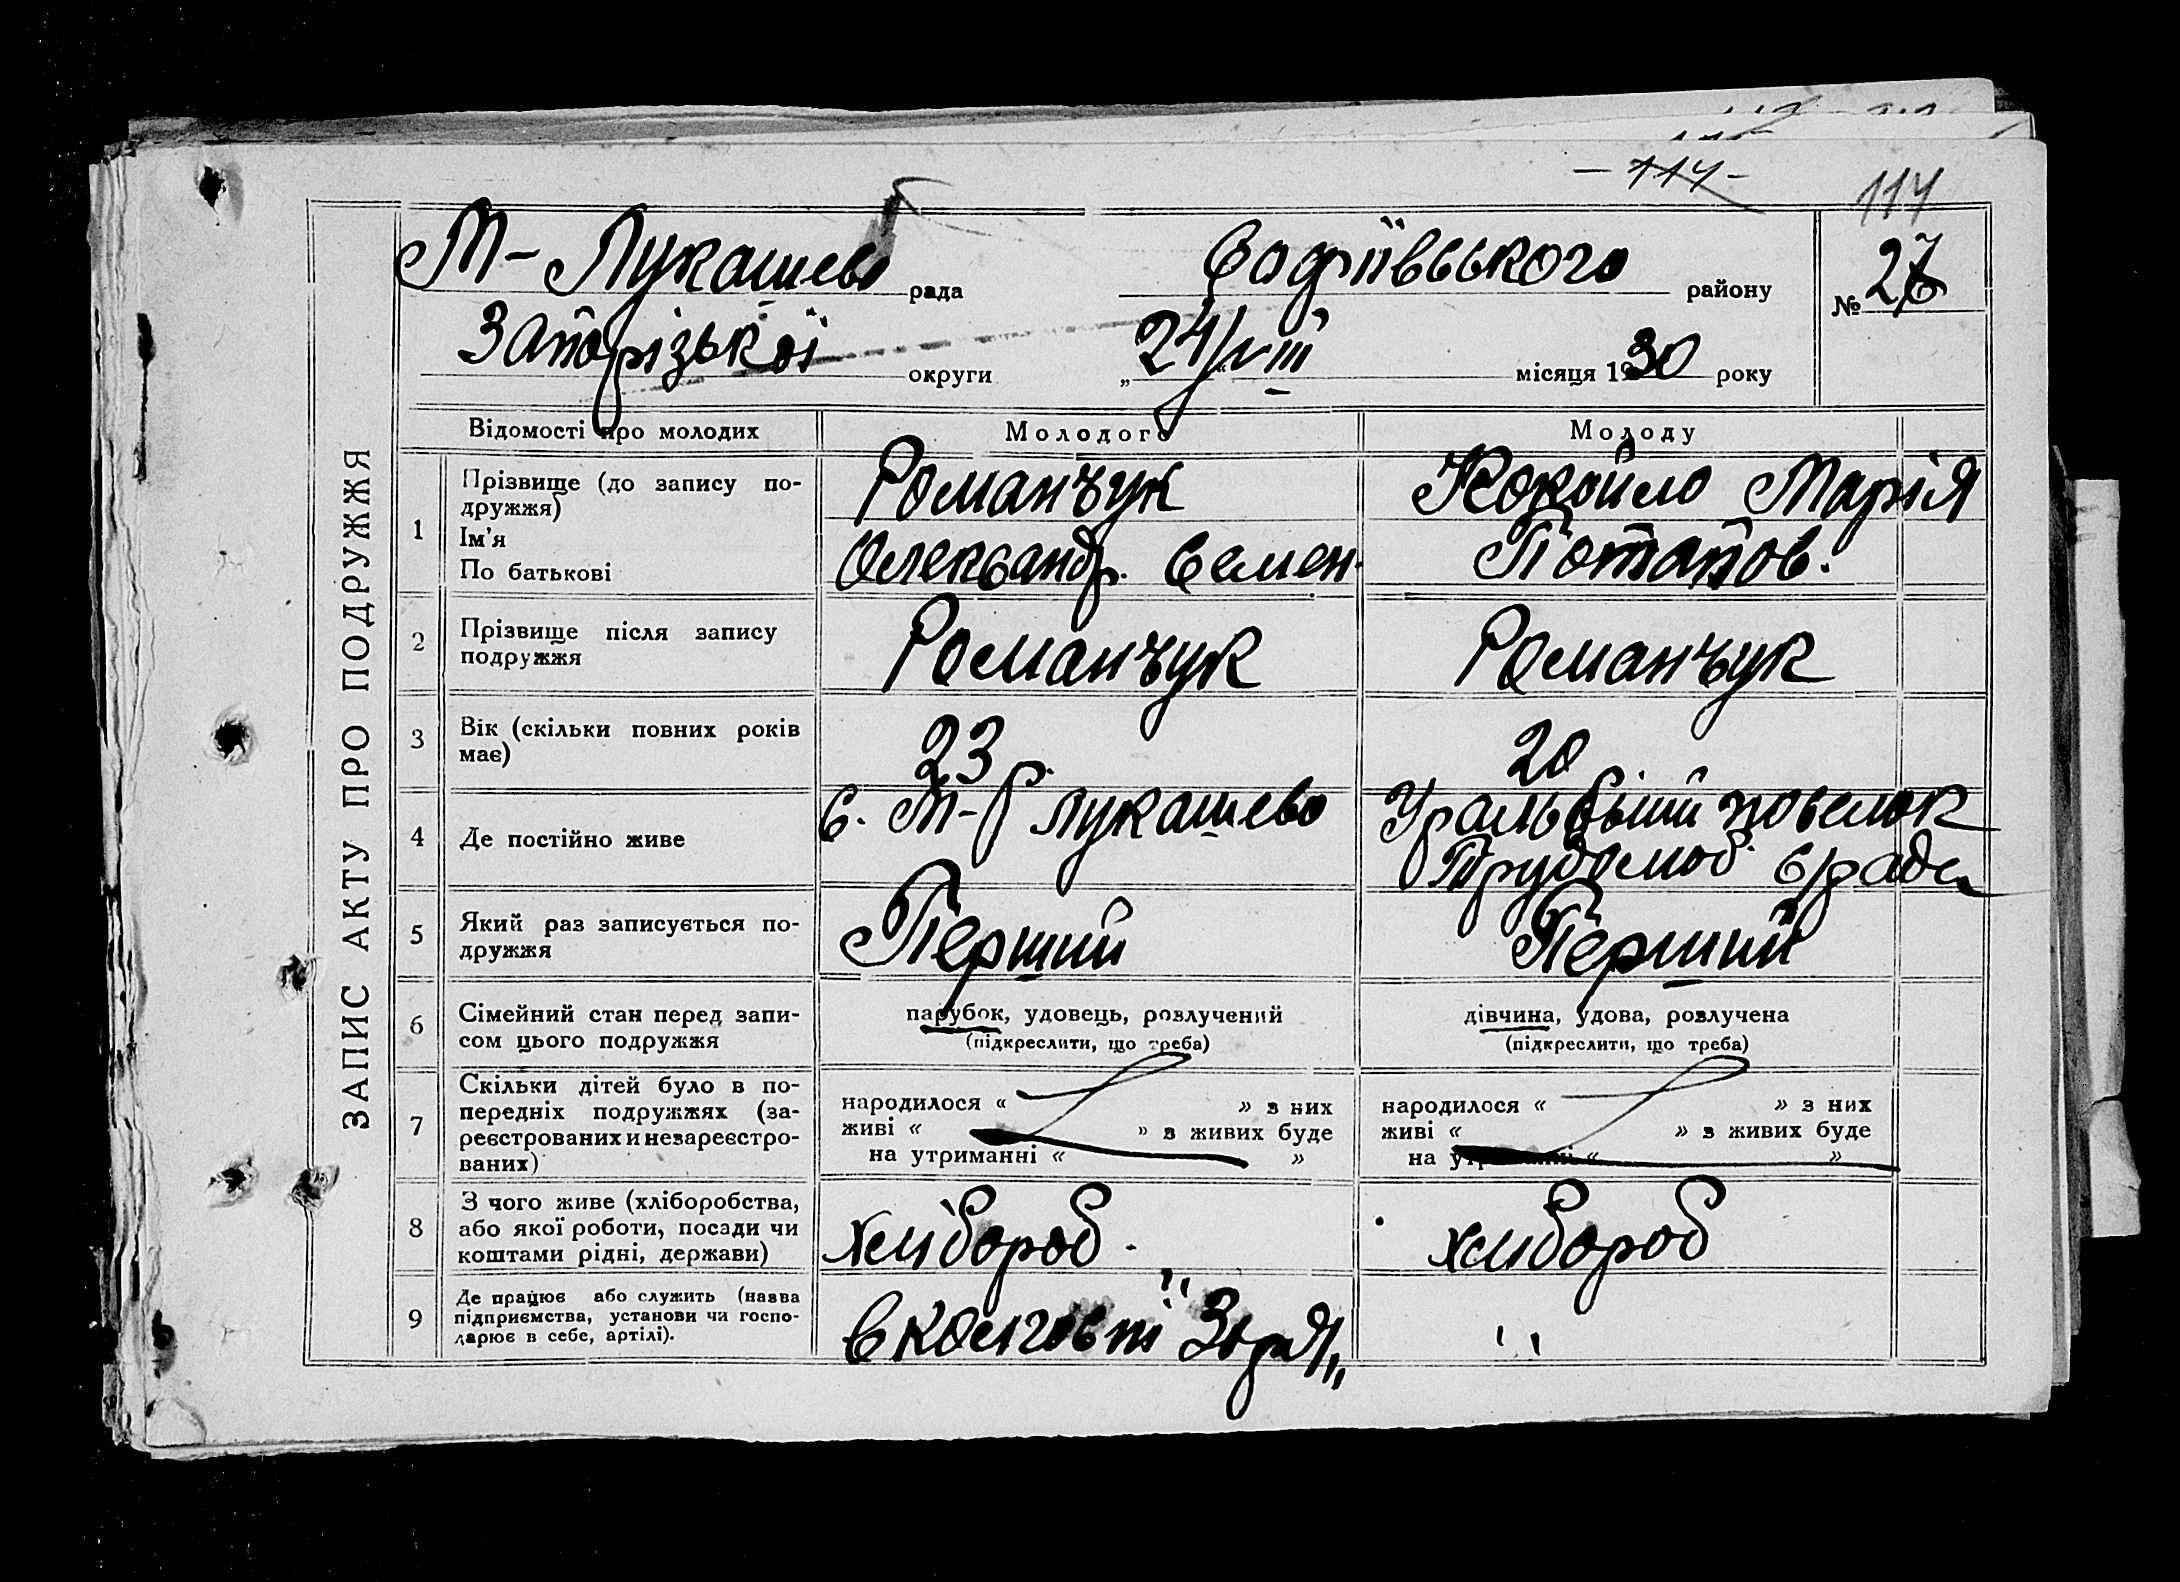 - 114 -
114
М- Лукашево рада Софіївського району
№ 27
Запорізької округи „24/VIII“ місяця 1930 року
ЗАПИС АКТУ ПРО ПОДРУЖЖЯ
Відомості про молодих Молодого Молоду
1 Прізвище (до запису по-
дружжя)
Ім'я
По батькові
Романчук
Олександр. Семен.
Кокойло Марія
Потапов.
2 Прізвище після запису
подружжя
Романчук
Романчук
3 Вік (скільки повних років
має)
23
20
4 Де постійно живе
с. М- Лукашево
поселок
с/рада
5 Який раз записується по-
дружжя
Перший
Перший
6 Сімейний стан перед запи-
сом цього подружжя
парубок, удовець, розлучений
(підкреслити, що треба)
дівчина, удова, розлучена
(підкреслити, що треба)
7 Скільки дітей було в по-
передніх подружжях (за-
реєстрованих и незареєстро-
ваних)
народилося « » з них
живі « » з живих буде
на утриманні « »
народилося « » з них
живі « » з живих буде
на утриманні « »
8 З чого живе (хліборобства,
або якої роботи, посади чи
коштами рідні, держави)
хлібороб.
хлібороб
9 Де працює або служить (назва
підприємства, установи чи госпо-
дарює в себе, артілі).
в колгоспі "Зоря"
"